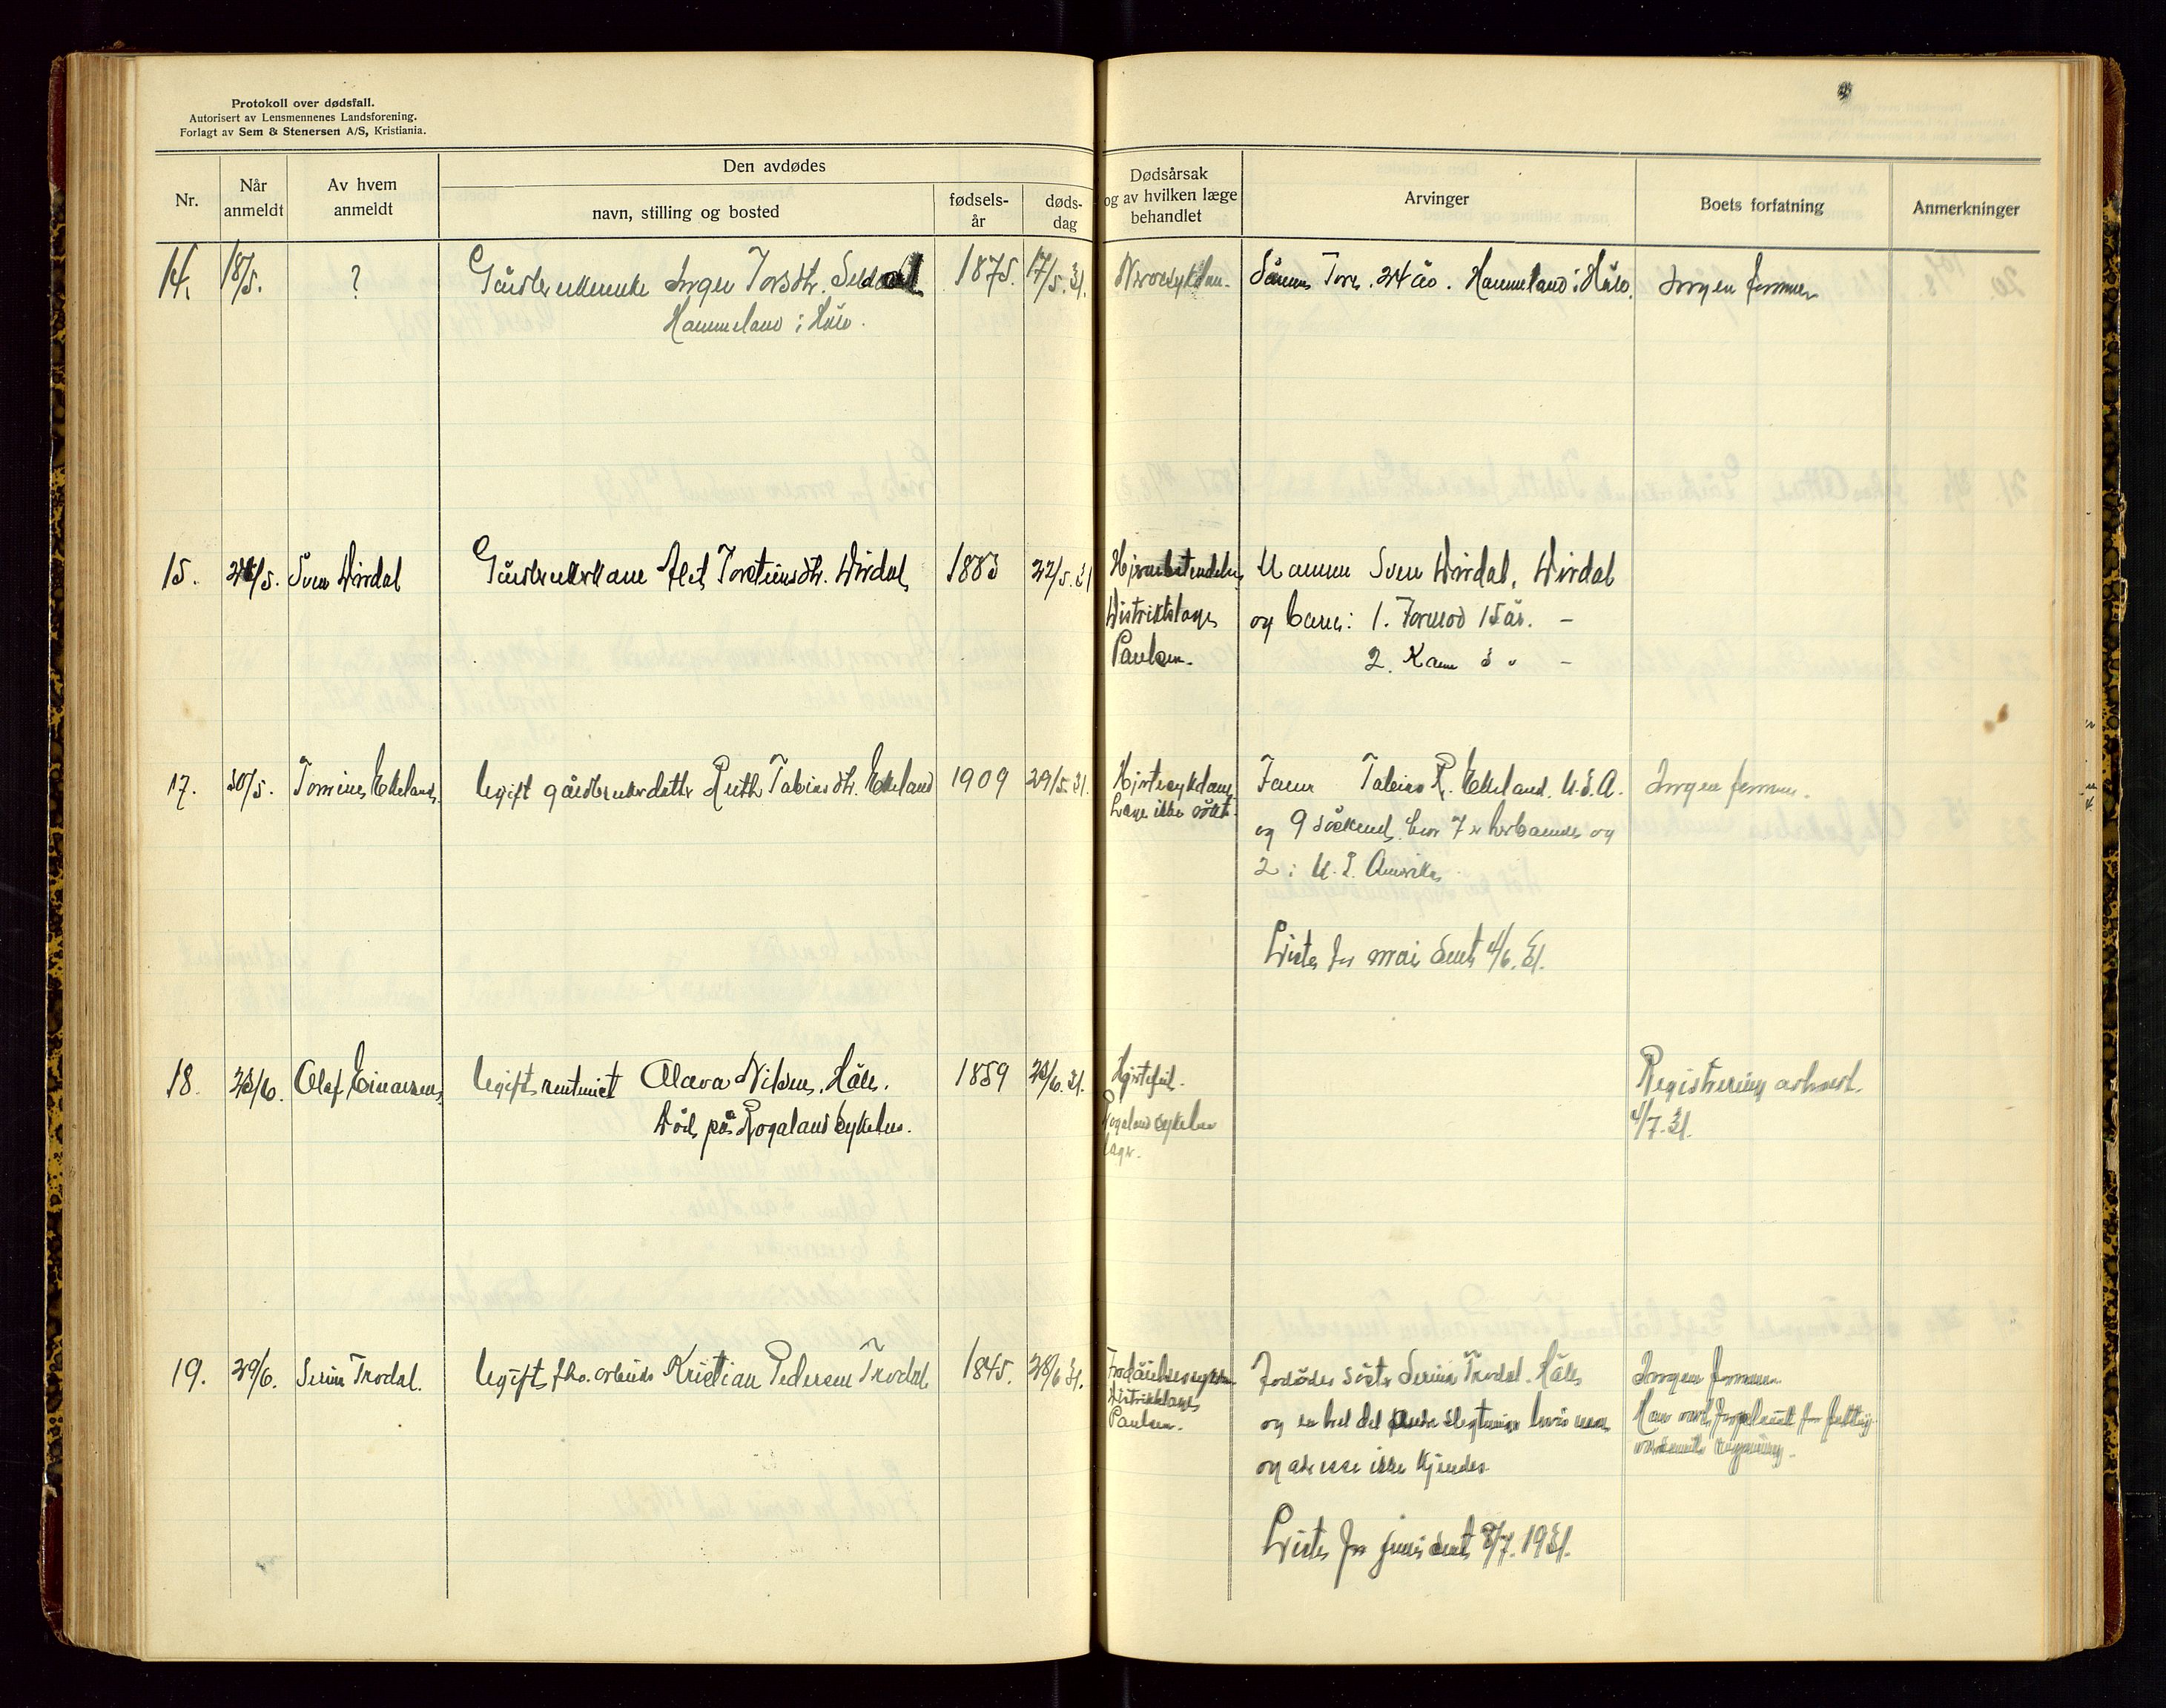 Protokoll over dødsfall.
Autorisert av Lensmennenes Landsforening.
Forlagt av Sem & Stenersen A/S, Kristiania.
Nr.
Når anmeldt
Av hvem anmeldt
Den avdødes
navn, stilling og bosted
fødsels-år
døds-dag
Dødsårsak og av hvilken læge behandlet
Arvinger
Boets forfatning
Anmerkninger
14. 18/5. ? Gårdbrukerenke Inger Torsdtr. 1875. 17/5.31. Nervesykdom. Sønnen Tore. 24 år. Hammeland i Håle. Ingen formue
Hammeland i Håle.
15. 26/5. Sven Dirdal Gårdbrukerkane Torsteinsdtr. Dirdal 1883 22/5.31 Mannen Sven Dirdal, Dirdal
Distriktslæge og barn: 1. Tormod 15 år. –
Paulsen. 2. 3 " –
17. 30/5. Tomine Ekeland. Ugift gårdbrukerdatter Ruth Tobiasdtr. Ekeland 1909 29/5.31. Hjertesykdom Faren Tobias R. Ekeland. U.S.A. Ingen formue.
Læge ikke søkt. og 9 søskend hvor 7 er herboende og
2 i U.S. Amerika
Liste for mai sendt 4/6.31.
18. 23/6. Olaf Einarsen, Ugift rentenist Nilsen, Håle. 1859 23/6.31. Hjertefeil. Registrering avholdt.
Død på Rogaland sykehus. Rogaland sykehus 4/7.31.
læger.
19. 29/6. Serine Trodal. Ugift fhv. arbeider Kristian Pedersen Trodal 1845. 28/6.31. Avdødes søster Serine Trodal. Håle Ingen formue
Distriktslæge og en hel del andre slegtninger hvis navn Han var forpleiet for fattig-
Paulsen. og adresse ikke kjendes. vesenets regning.
Liste for juni sendt 3/7.1931.